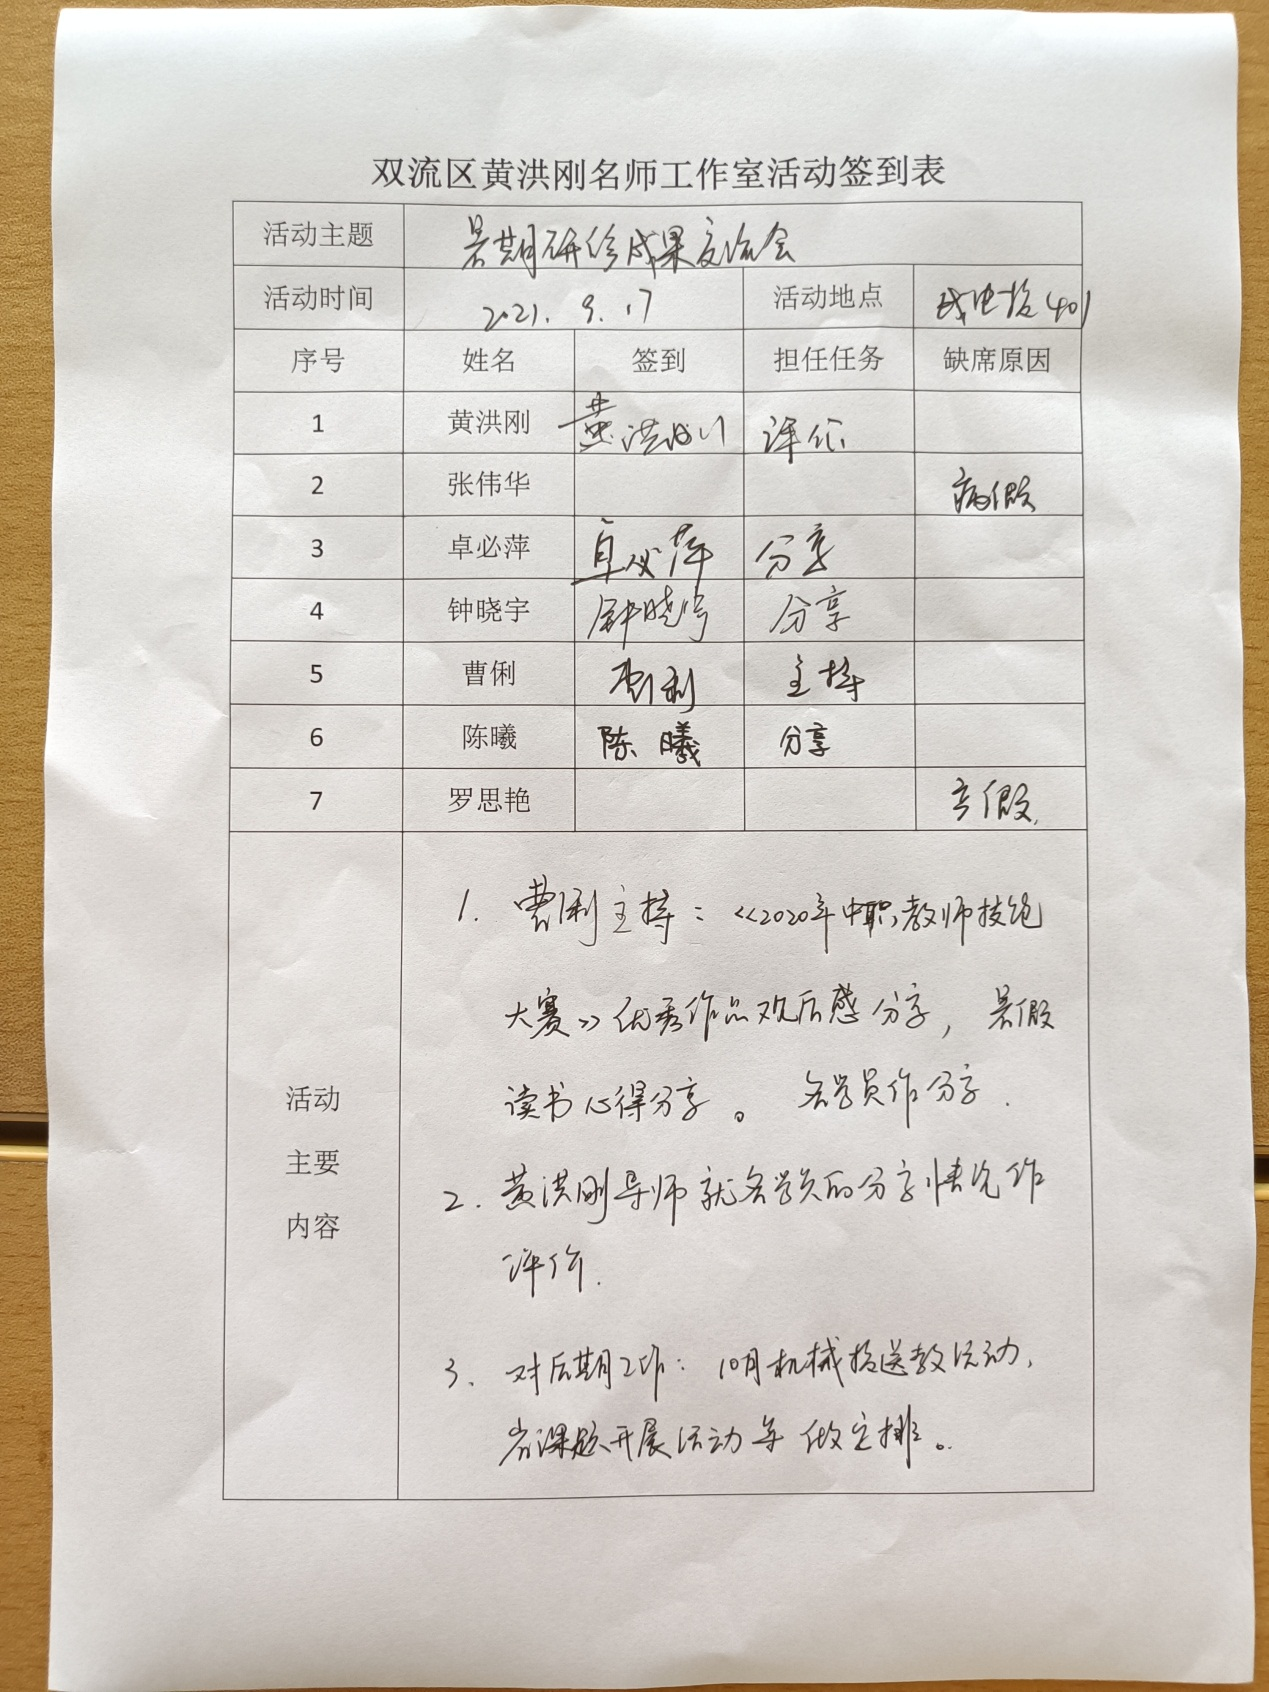 双流区黄洪刚名师工作室活动签到表
活动主题 暑期研修成果交流会
活动时间 2021.9.17 活动地点 401
序号 姓名 签到 担任任务 缺席原因
1 黄洪刚 黄洪刚 评价
2 张伟华 病假
3 卓必萍 卓必萍 分享
4 钟晓宇 钟晓宇 分享
5 曹俐 曹俐 主持
6 陈曦 陈曦 分享
7 罗思艳 假
活动
主要
内容
1. 曹俐主持：《2020年中职教师技能
大赛》优秀作品观后感分享，暑假
读书心得分享。 各学员作分享.
2. 黄洪刚导师就各学员的分享情况作
评价.
3、对后期工作：10月机械 送教活动、
省课题开展活动等做安排。